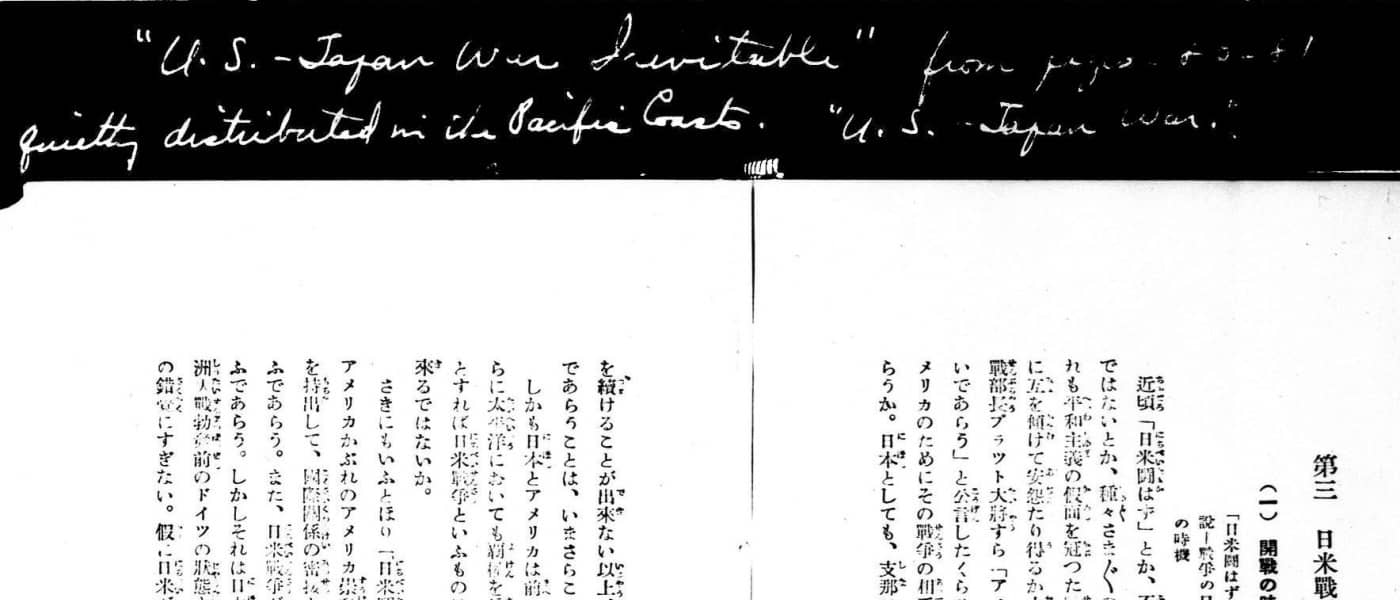 "U.S. - Japan War Inevitable" from
quietly distributed in the Pacific Coasts. "U.S. - Japan War."
第三 日米戰
(一) 開戰の
「日米鬪はず
説―戰爭の
の時機
近頃「日米鬪はず」とか、
ではないとか、種々さま〲
れも平和主義の假面を冠つた
に左を傾けて安怨たり得るか
戰部長プラット大將すら「ア
いであらう」と公言したくら
メリカのためにその戰爭の相
らうか。日本としても、支那
を續けることが出來ない以上
であらうことは、いまさらこ
しかも日本とアメリカは前
らに太平洋においても覇權を
とすれば日米戰爭といふもの
來るではないか。
さきにもいふとほり「日米
アメリカかぶれのアメリカ崇
を持出して、國際關係の密接
ふであらう。また、日米戰爭
ふであらう。しかしそれは日
洲大戰勃發前のドイツの狀態
の錯覺にすぎない。假に日米